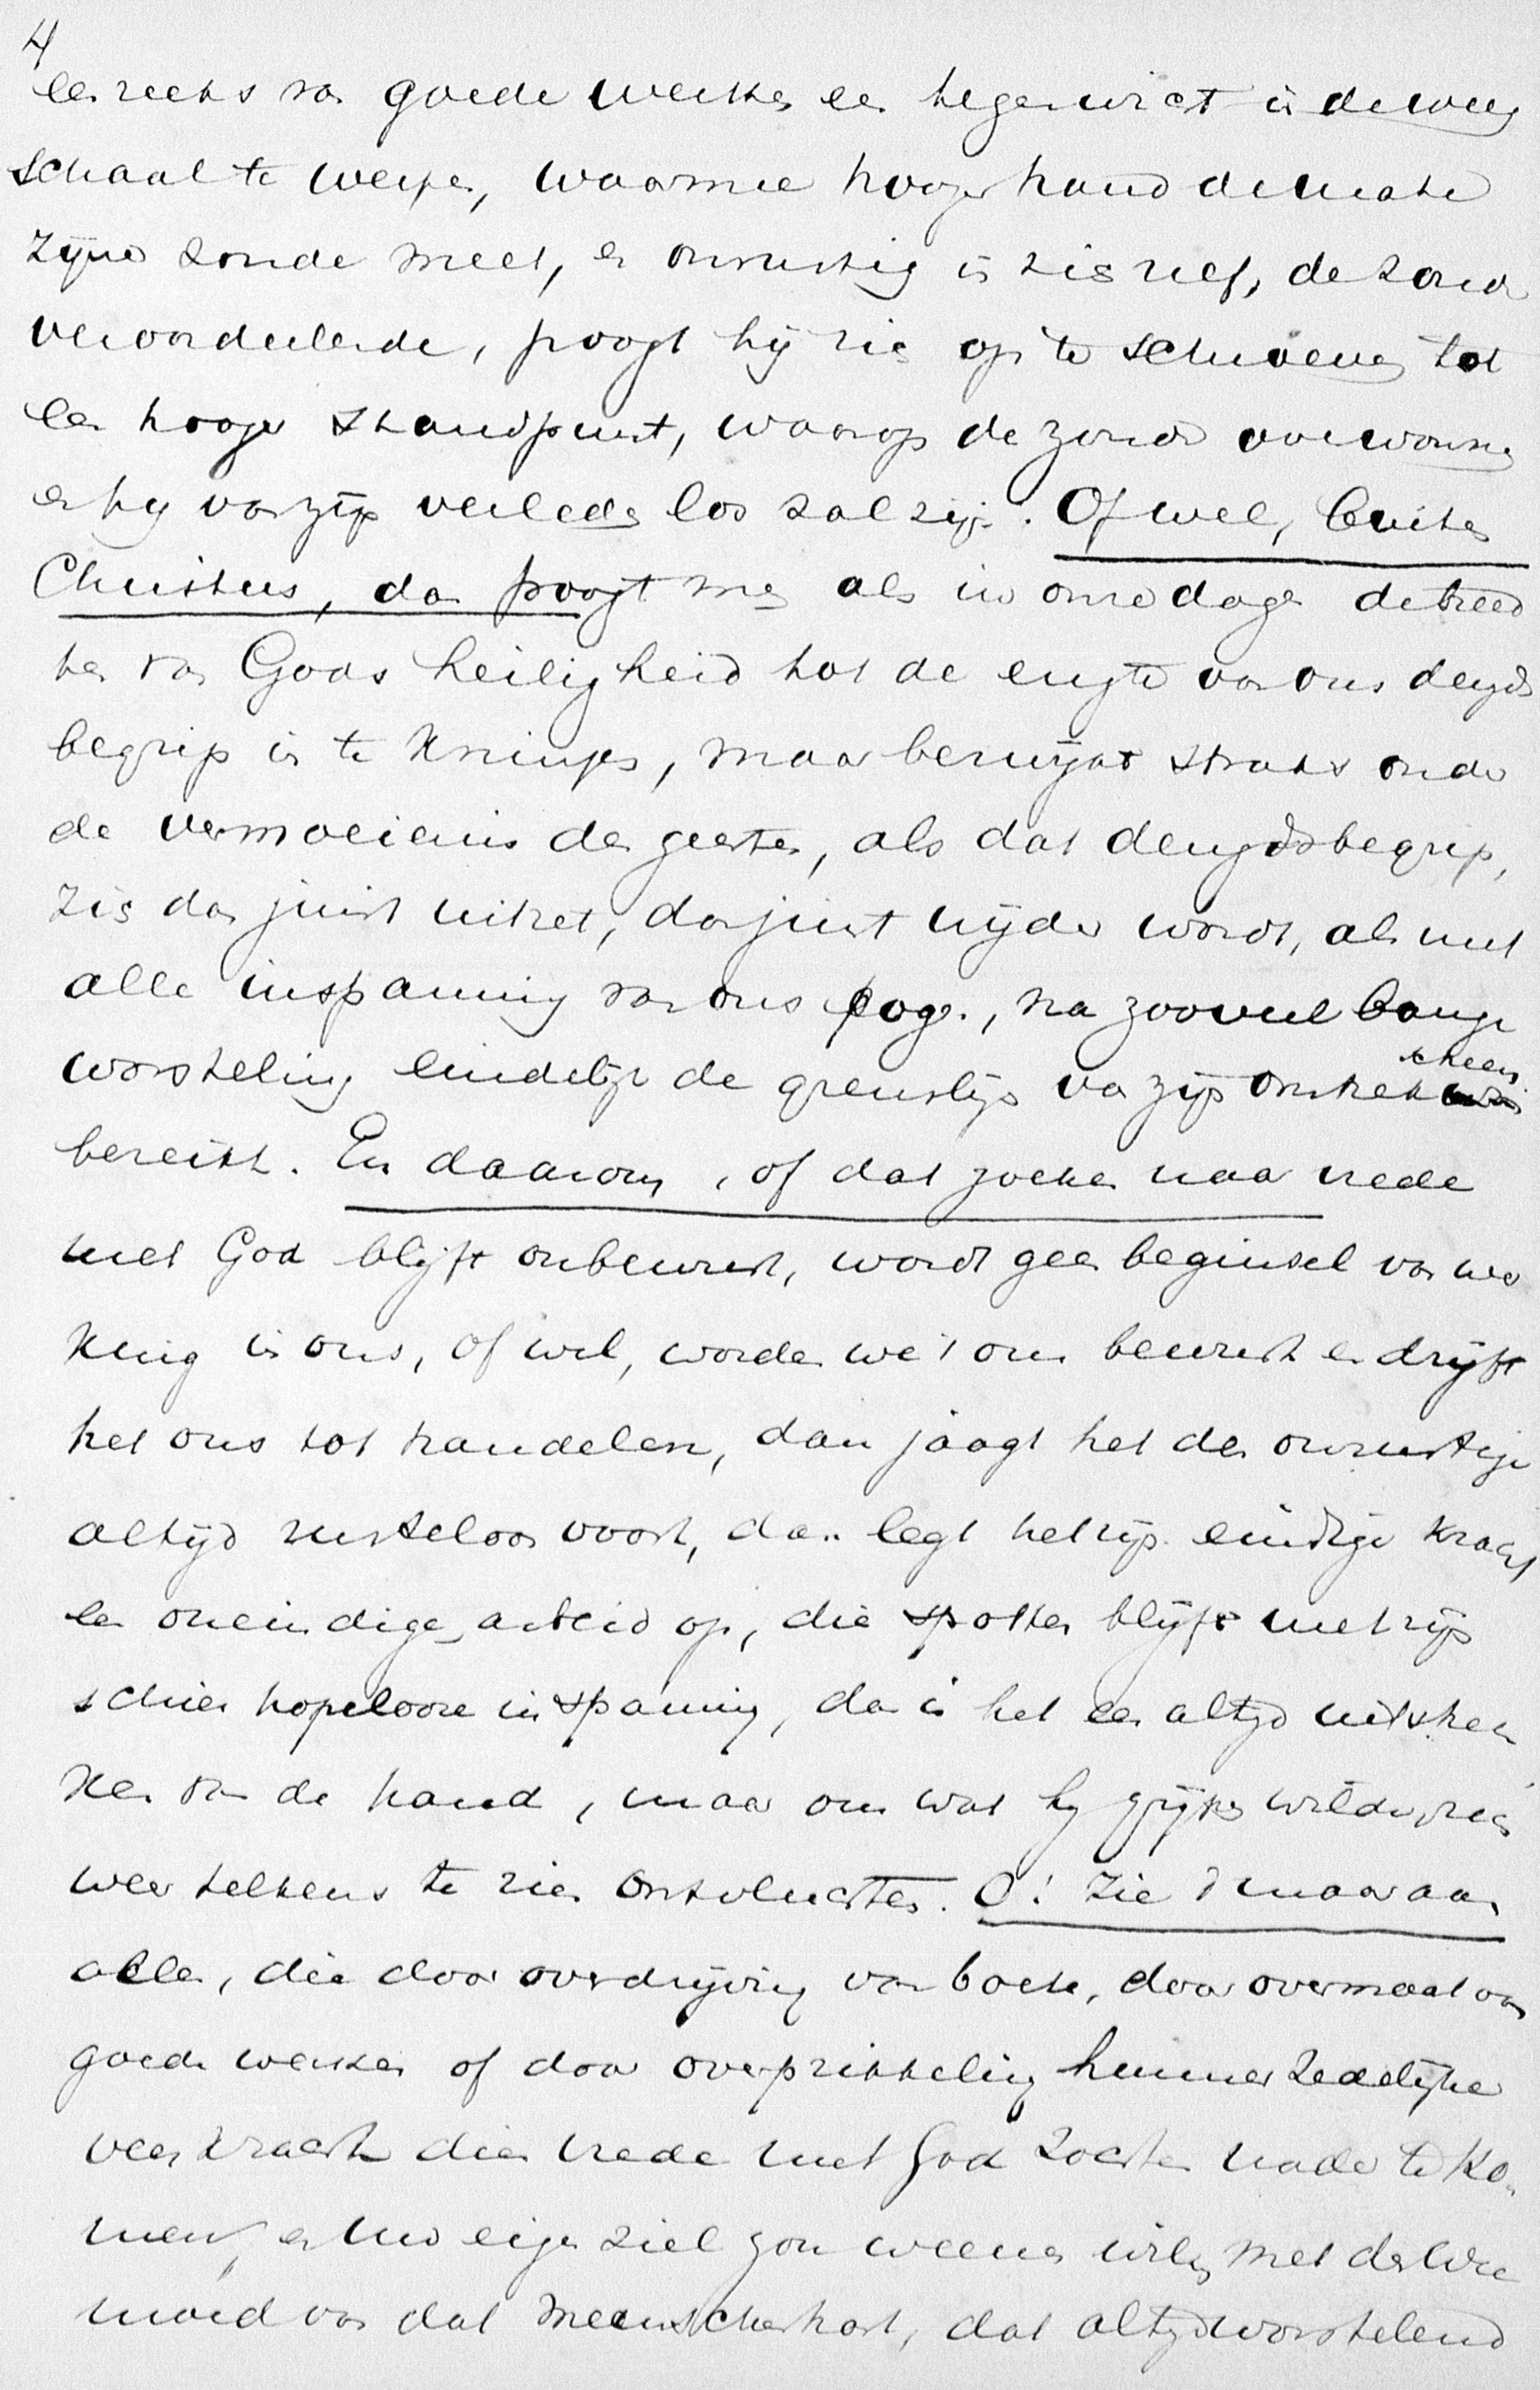 4
een reeks van goede werken een tegenwicht in de weeg
schaal te werpen, waarmee hooger hand de mate
zijner zonde meet, en onrustig in zich zelf, de zonde
veroordeelende, poogt hij zich op te schroeven tot
een hooger standpunt, waarop de zonde overwonnen
en hij van zijn verleden los zal zijn. Of wel, buiten
Christus, dan poogt men als in onze dagen de breed
te van Gods heiligheid tot de engte van ons deugds
begrip in te krimpen, maar bezwijkt straks onder
de vermoeienis des geestes, als dat deugdsbegrip,
zich dan juist uitzet, dan juist wijder wordt, als met
alle inspanning van ons pogen, na zooveel bange
worsteling eindelijk de grenslijn van zijn omtrek scheen
bereikt. En daarom, of dat zoeken naar vrede
met God blijft onbewust, wordt geen beginsel van wer
king in ons, of wel, worden we 't ons bewust en drijft
het ons tot handelen, dan jaagt het den onrustige
altijd rusteloos voort, dan legt het zijn eindige kracht
een oneindigen arbeid op, die spotten blijft met zijn
schier hopelooze inspanning, dan is het een altijd uitstrek
ken van de hand, maar om wat hij grijpen wilde, zich
weer telkens te zien ontvluchten. O! Zie 't maar aan
allen, die door overdrijving van boete, door overmaat van
goede werken of door overprikkeling hunner zedelijke
veerkracht dien vrede met God zochten nader te ko
men, en uw eigen ziel zou weenen willen met den wee
moed van dat menschenhart, dat altijd worstelend